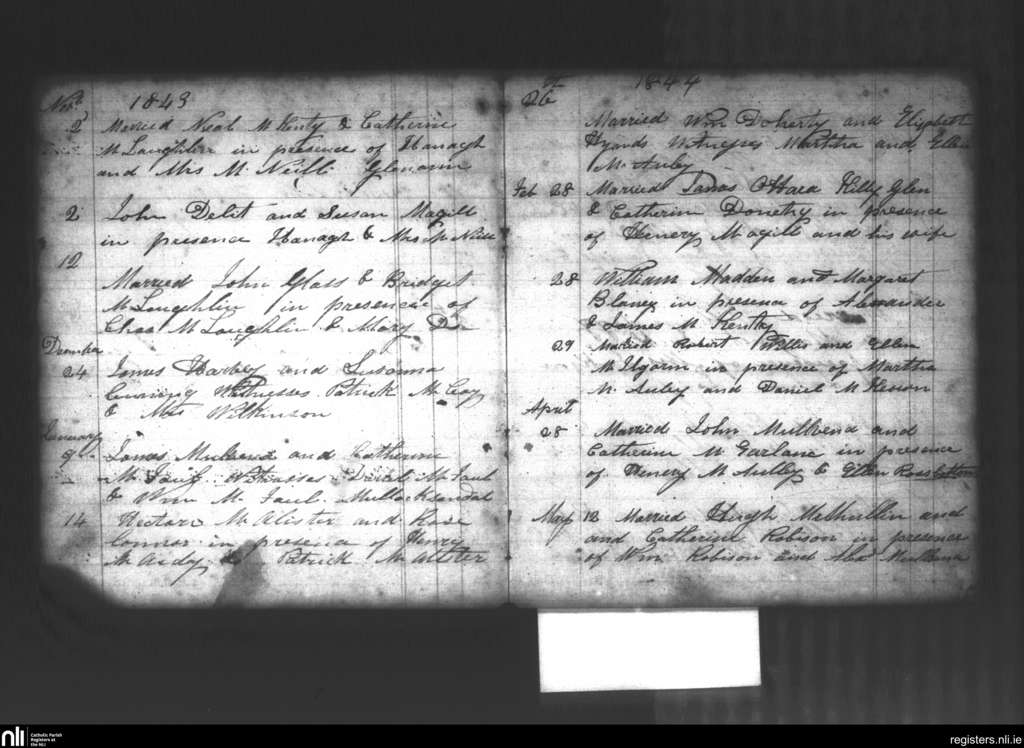 Nov.
1843
2 Married Neal McKinty & Catherine
McLaughlin in presence of Hanagh
and Mrs McNeill Glenarm
2 John Debit and Susan Magill
in presence Hanagh & Mrs McNeill
12
Married John Glass & Bridget
McLoughlin in presence of
Chas McLaughlin & Mary
December
24 James Harvey and Susanna
Witnesses Patrick McCay
& Mrs Wilkinson
January
9 James Mulvena and Catherine
Witnesses Daniel
& Wm
14 Hector McAlister and Rose
Connor in presence of Henry
McAuley & Patrick McAlister
1844
26th
Married Wm Doherty and Elizabeth
Hyands Witnesses Martha and Ellen
McAuley
Feb 28 Married James OHara Killy Glen
& Catherin in presence
of Henery Magill and his wife
28 William Hadden and Margaret
Blaney in presence of Alexander
& James McKentty
29 Married Robert Willis and Ellen
in presence of Martha
McAuley and Daniel McKeown
April
28 Married John Mulvena and
Catherine McGarlane in presence
of Henery McAulley & Ellen
May 13 Married Hugh McMullin and
and Catherine Robison in presence
of Wm Robison and Alex Mulvena
nli
Catholic Parish
Registers at
the NLI
registers.nli.ie